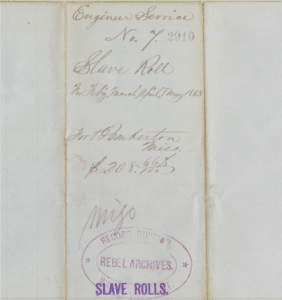 Engineer Service
No. 7. 2910
Slave Roll
For Feby, March, April, May 1863
Fort Pemberton
Miss.
$208.
RECORD DIVISION
REBEL ARCHIVES.
SLAVE ROLLS.